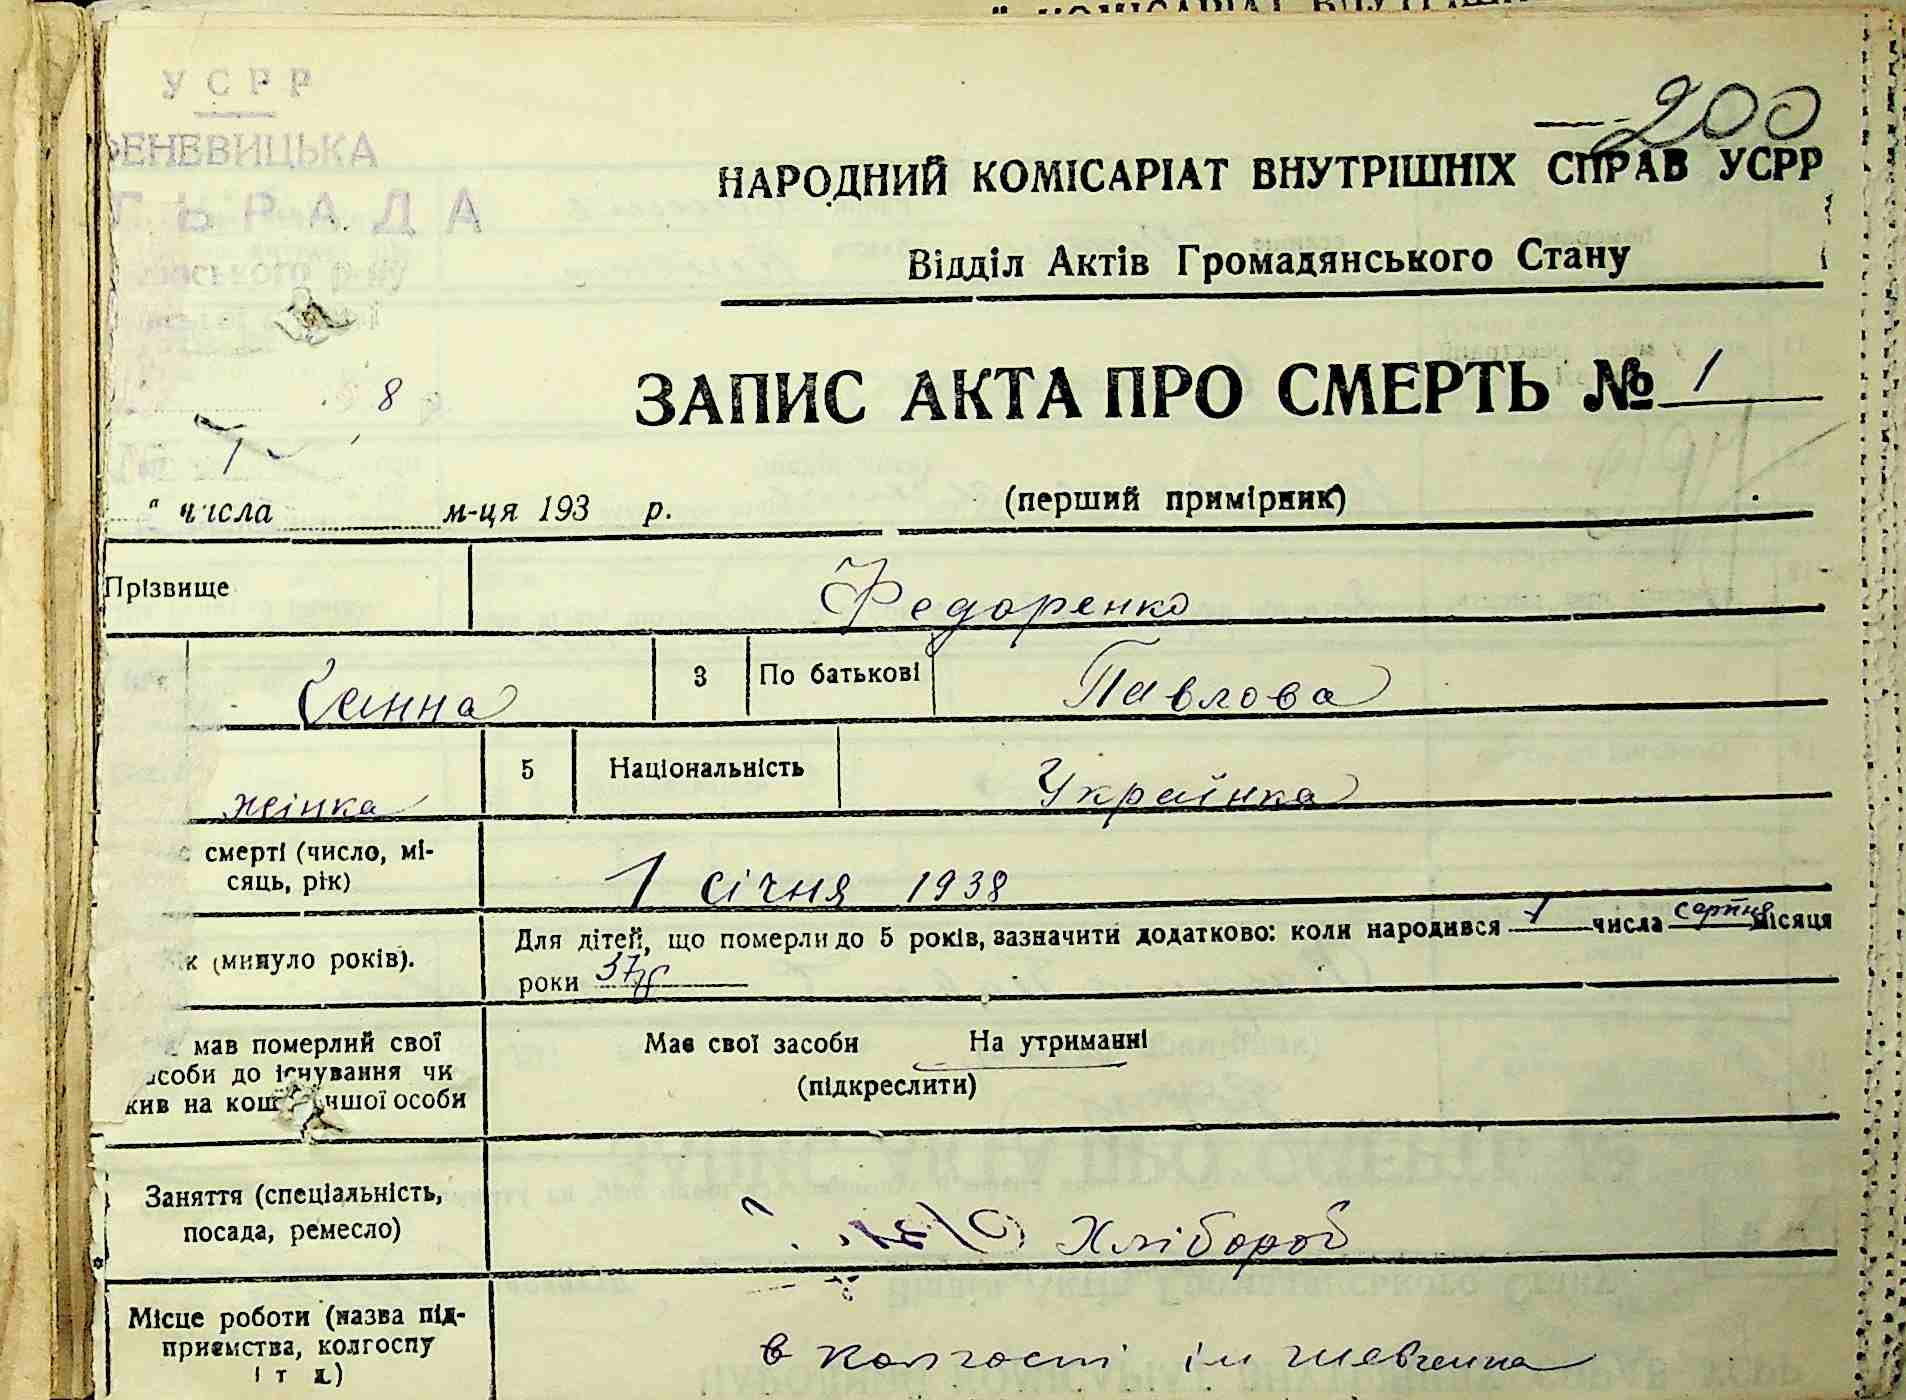 УСРР
200
ФЕНЕВИЦЬКА
РАДА
НАРОДНИЙ КОМІСАРІАТ ВНУТРІШНІХ СПРАВ УСРР
Відділ Актів Громадянського Стану
ЗАПИС АКТА ПРО СМЕРТЬ № 1
8
1
" числа м-ця 193 р.
(перший примірник)
Прізвище Федоренко
Ганна 3 По батькові Павлова
жінка 5 Національність Українка
смерті (число, мі-
сяць, рік)
1 січня 1938
(минуло років).
Для дітей, що померли до 5 років, зазначити додатково: коли народився 1 числа серпня місяця
роки 37 р
мав померлий свої
засоби до існування чи
жив на кошти іншої особи
Має свої засоби На утриманні
(підкреслити)
Заняття (спеціальність,
посада, ремесло)
Хлібороб
Місце роботи (назва під-
приємства, колгоспу
і т д.)
в колгоспі ім Шевченка